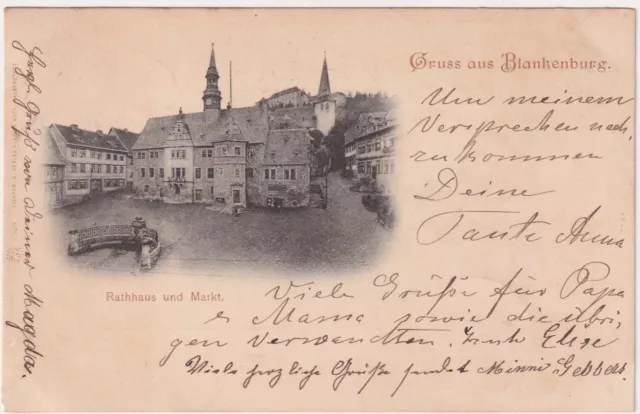 Gruss aus Blankenburg.
Um meinem
Versprechen nach
zu kommen
Deine
Tante Anna
Rathhaus und Markt.
Viele Grüße für Papa
u Mama sowie die übri-
gen Verwandten. Tante Elise
Viele herzliche Grüße sendet Minni Gebbers.
Herzl. Gruß von Deiner Magda.